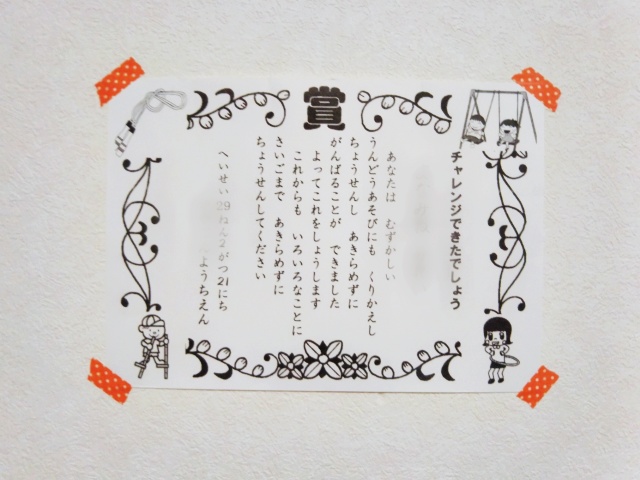 賞
チャレンジできたでしょう
あなたは　むずかしい
うんどうあそびにも　くりかえし
ちょうせんし　あきらめずに
がんばることが　できました
よってこれをしょうします
これからも　いろいろなことに
さいごまで　あきらめずに
ちょうせんしてください
へいせい29ねん2がつ21にち
ようちえん